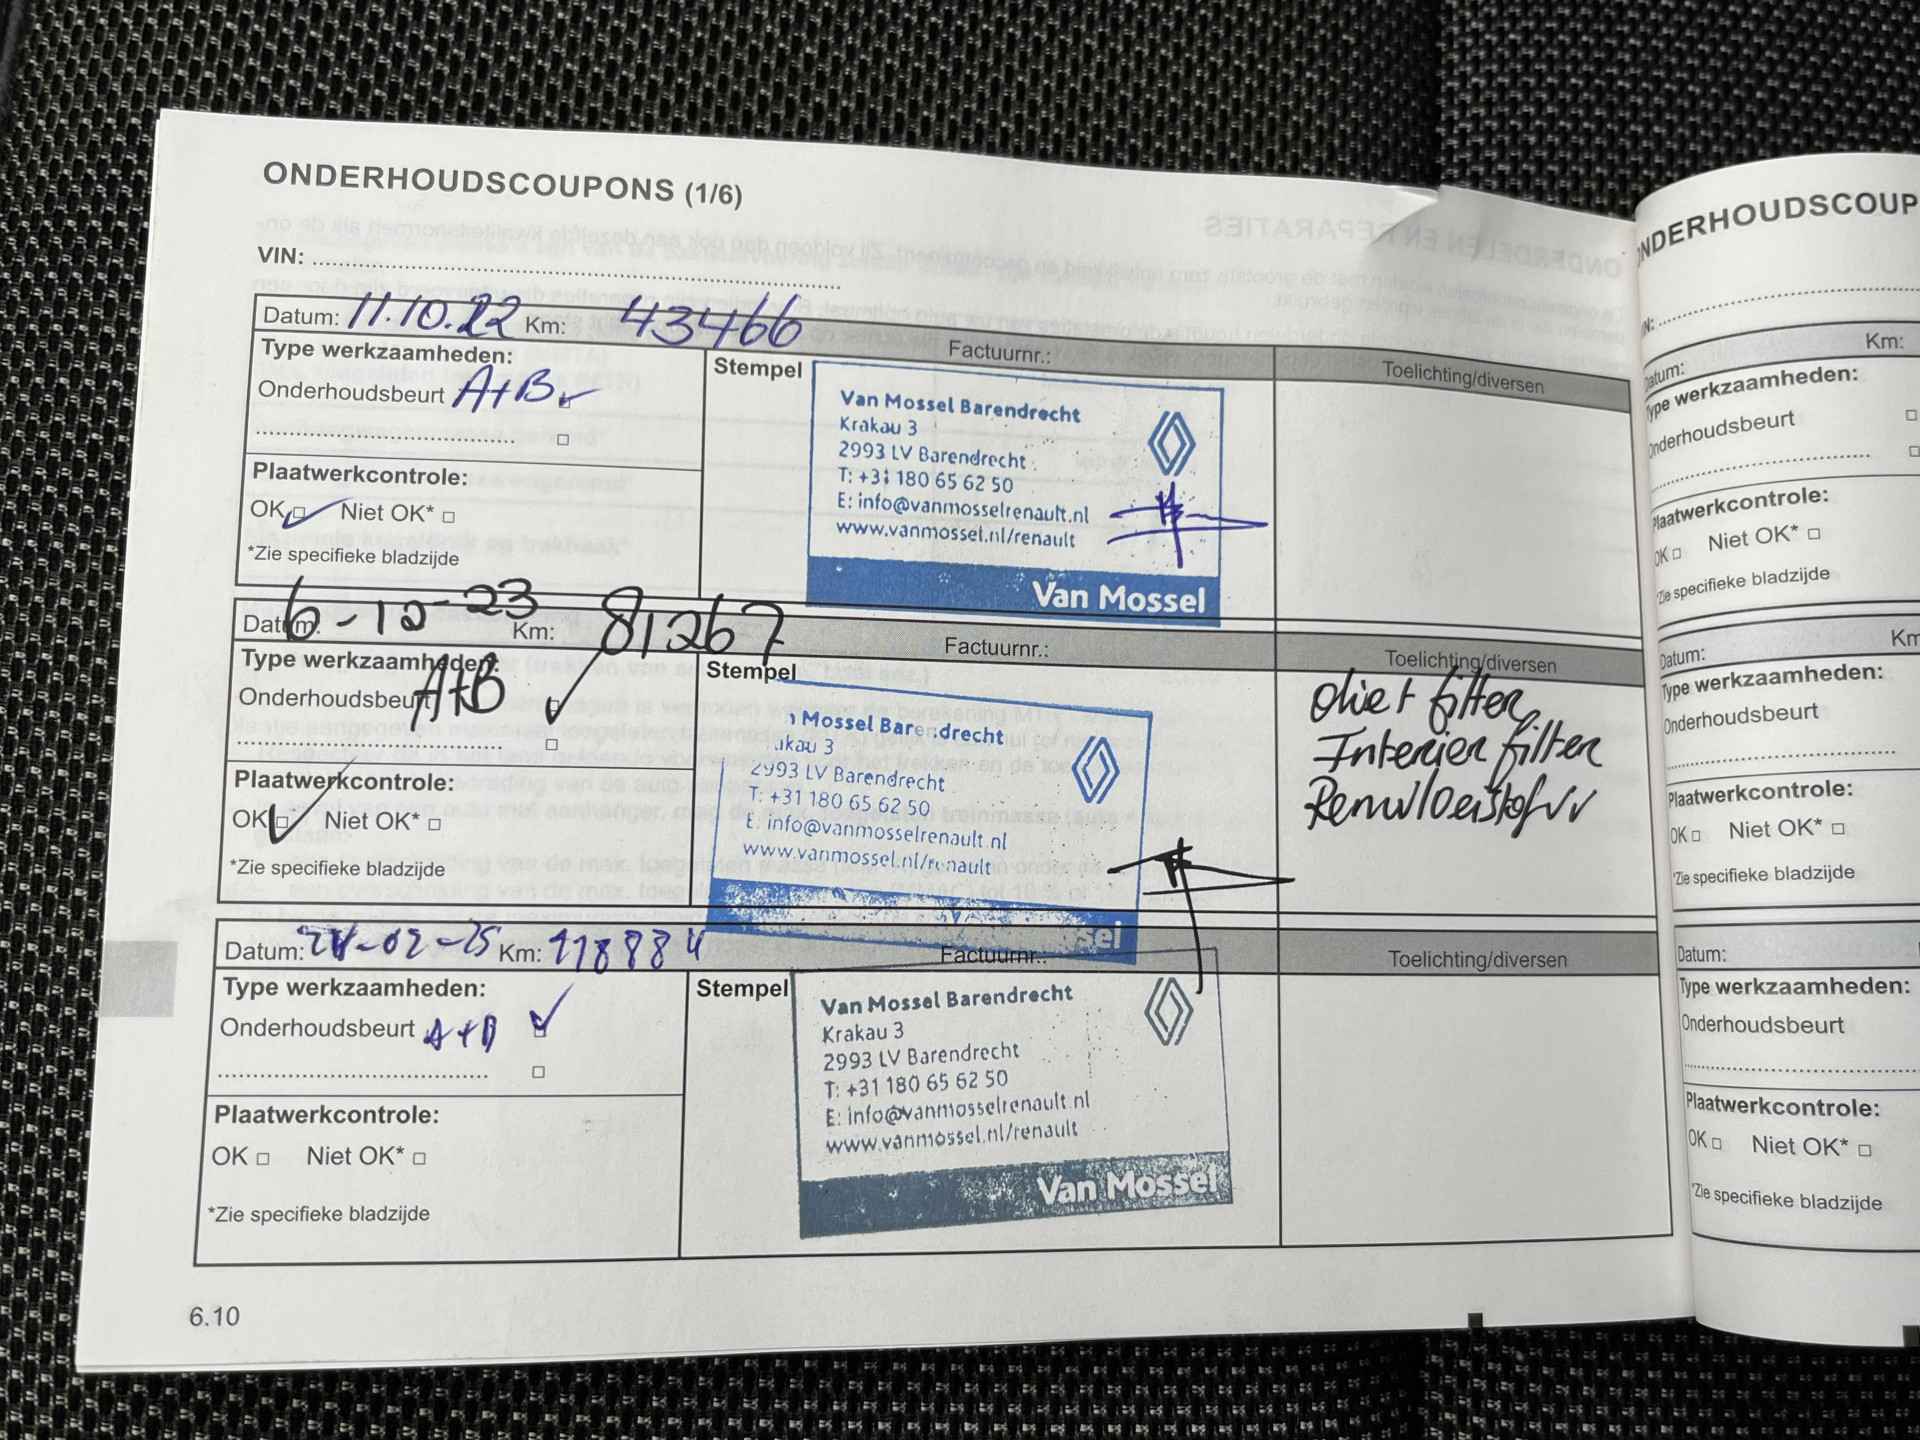 ONDERHOUDSCOUPONS (1/6)
VIN:
Datum: 11.10.22 Km: 43466
Factuurnr.:
Toelichting/diversen
Type werkzaamheden:
Onderhoudsbeurt A+B
Plaatwerkcontrole:
OK Niet OK*
*Zie specifieke bladzijde
Stempel
Van Mossel Barendrecht
Krakau 3
2993 LV Barendrecht
T: +31 180 65 62 50
E: info@vanmosselrenault.nl
www.vanmossel.nl/renault
Van Mossel
Datum: 6-10-23 Km: 81267
Factuurnr.:
Toelichting/diversen
Type werkzaamheden:
Onderhoudsbeurt A+B
Plaatwerkcontrole:
OK Niet OK*
*Zie specifieke bladzijde
Stempel
n Mossel Barendrecht
akau 3
2993 LV Barendrecht
T: +31 180 65 62 50
E: info@vanmosselrenault.nl
www.vanmossel.nl/renault
ssel
filter
Interier filter
Remvloeistof
Datum: -02-25 Km: 118884
Factuurnr.:
Toelichting/diversen
Type werkzaamheden:
Onderhoudsbeurt A+B
Plaatwerkcontrole:
OK Niet OK*
*Zie specifieke bladzijde
Stempel
Van Mossel Barendrecht
Krakau 3
2993 LV Barendrecht
T: +31 180 65 62 50
E: info@vanmosselrenault.nl
www.vanmossel.nl/renault
Van Mossel
6.10
NDERHOUDSCOUP
N:
Datum: Km:
Type werkzaamheden:
Onderhoudsbeurt
Plaatwerkcontrole:
OK Niet OK*
*Zie specifieke bladzijde
Datum: Km
Type werkzaamheden:
Onderhoudsbeurt
Plaatwerkcontrole:
OK Niet OK*
*Zie specifieke bladzijde
Datum:
Type werkzaamheden:
Onderhoudsbeurt
Plaatwerkcontrole:
OK Niet OK*
*Zie specifieke bladzijde